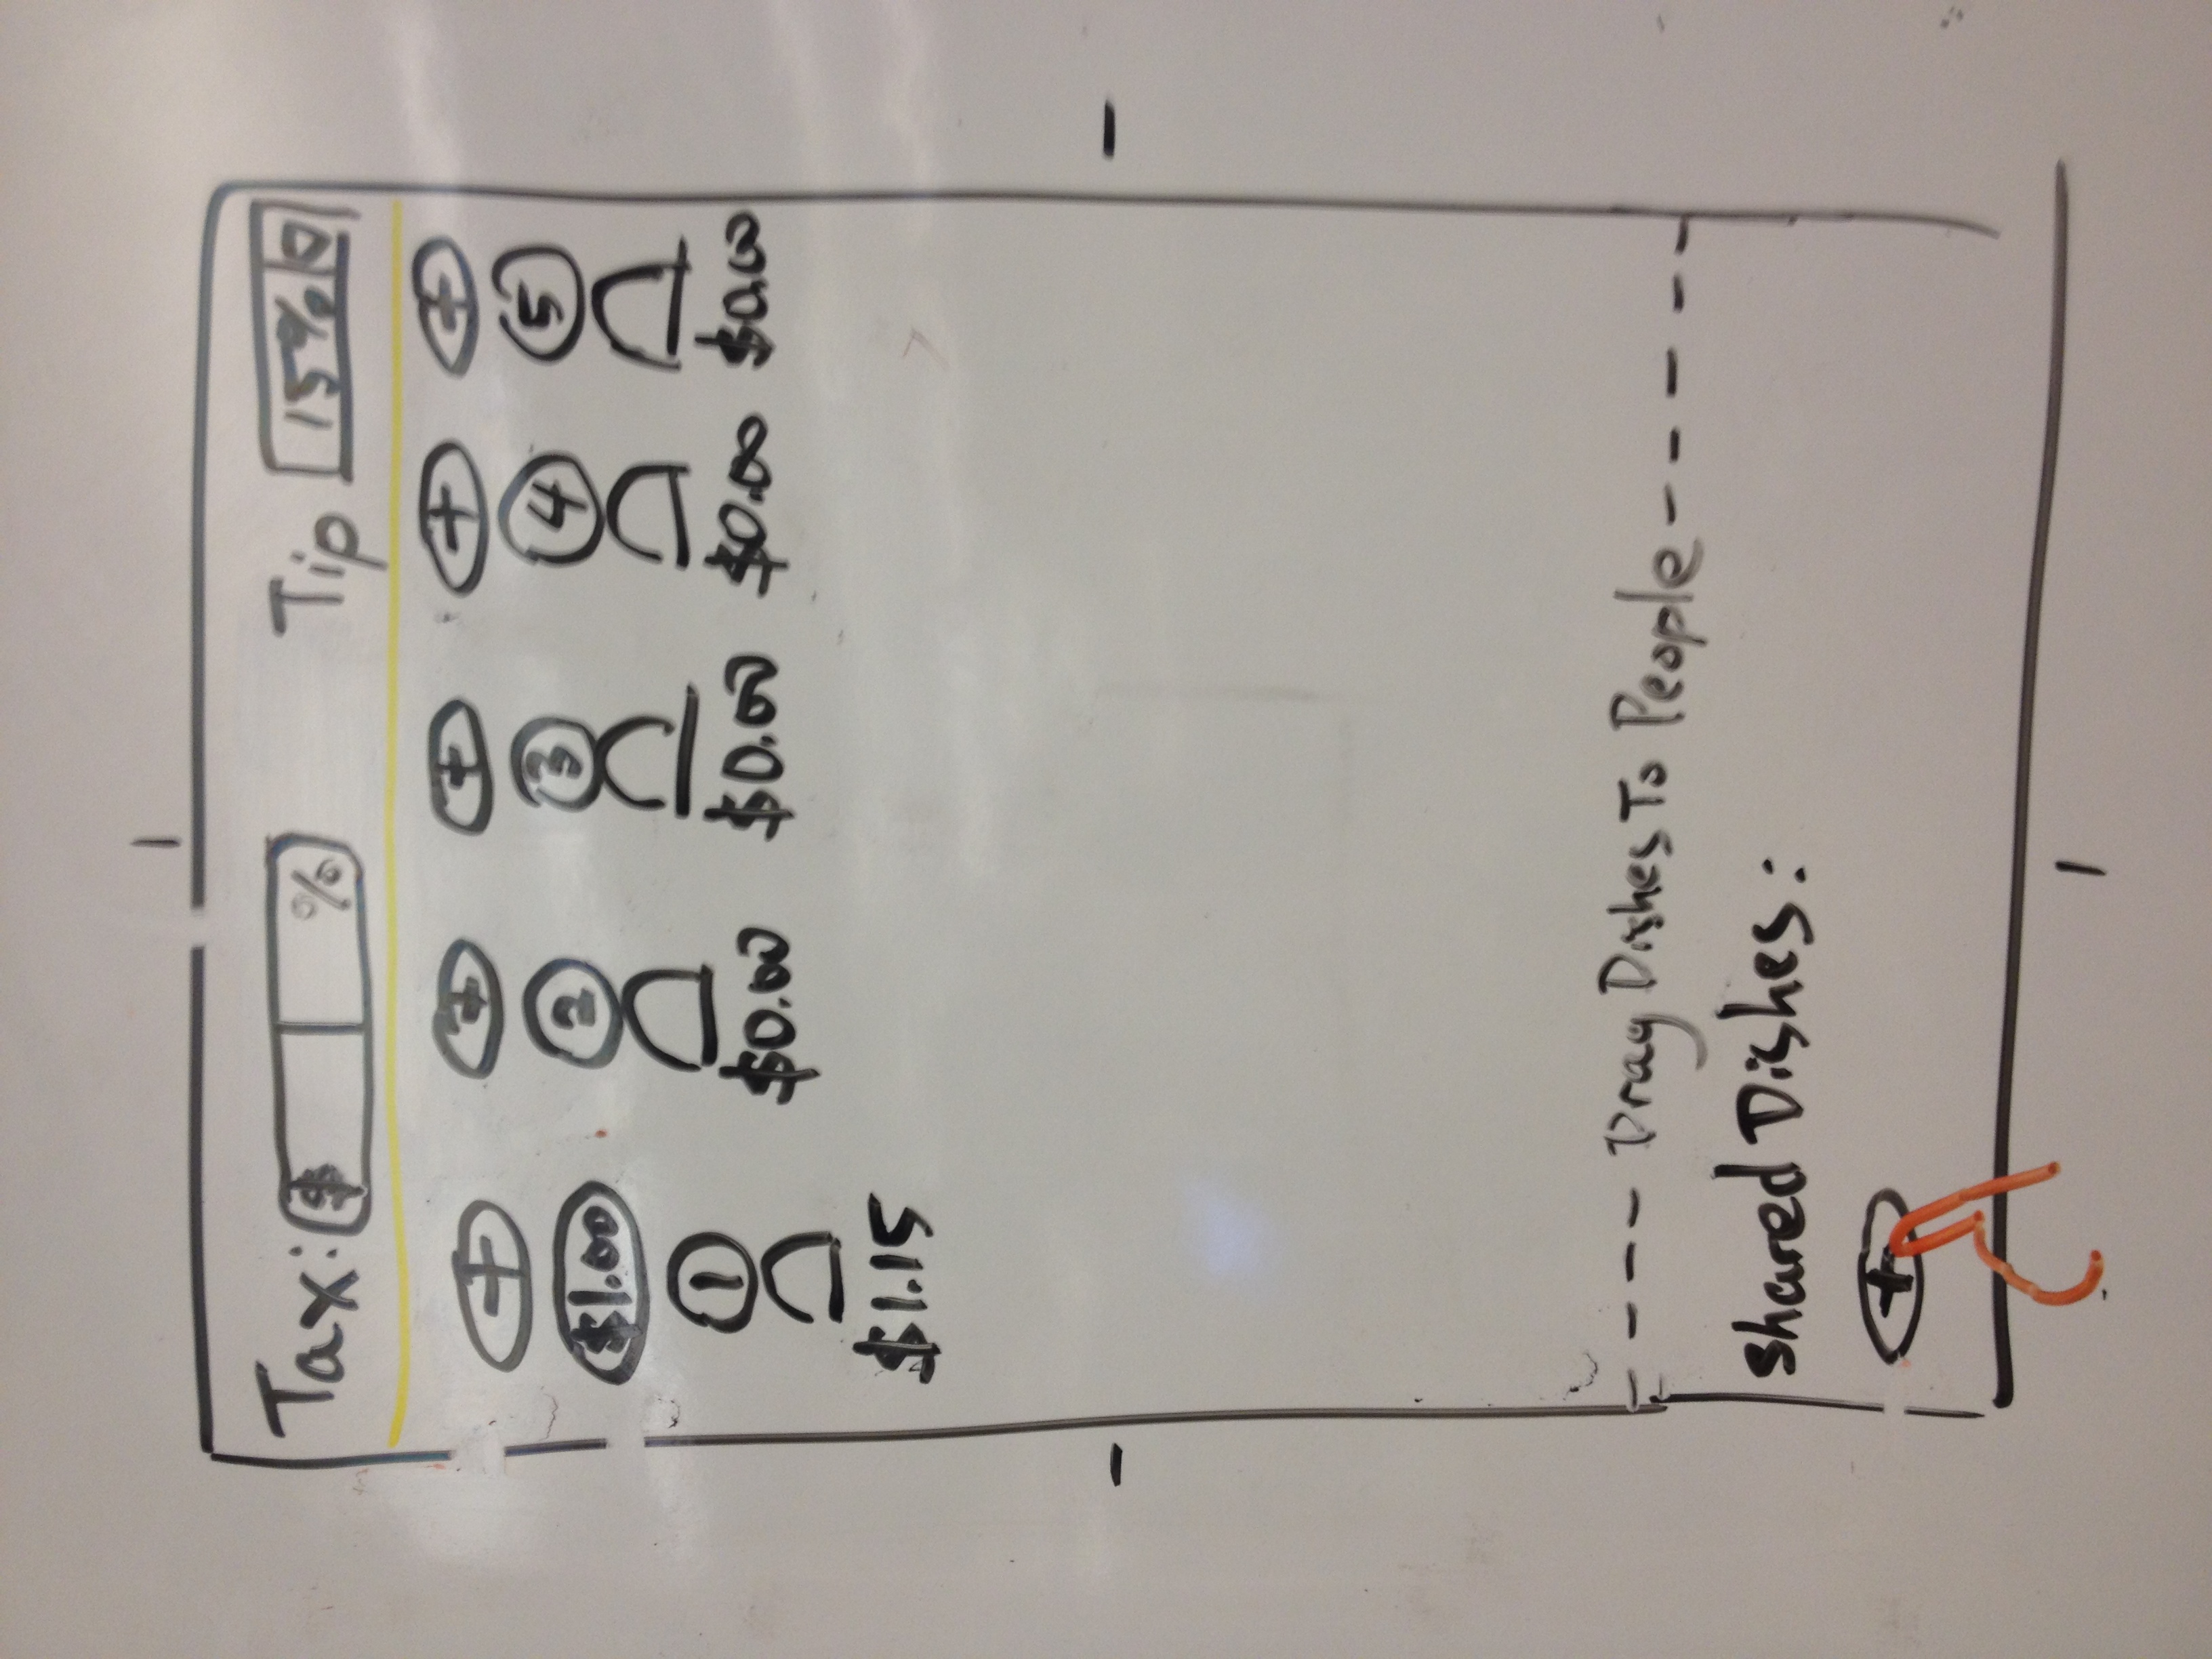 Tax: $ % Tip 15%
+ + + + +
$1.00
1 2 3 4 5
$1.15 $0.00 $0.00 $0.00 $0.00
Drag Dishes To People
Shared Dishes:
+